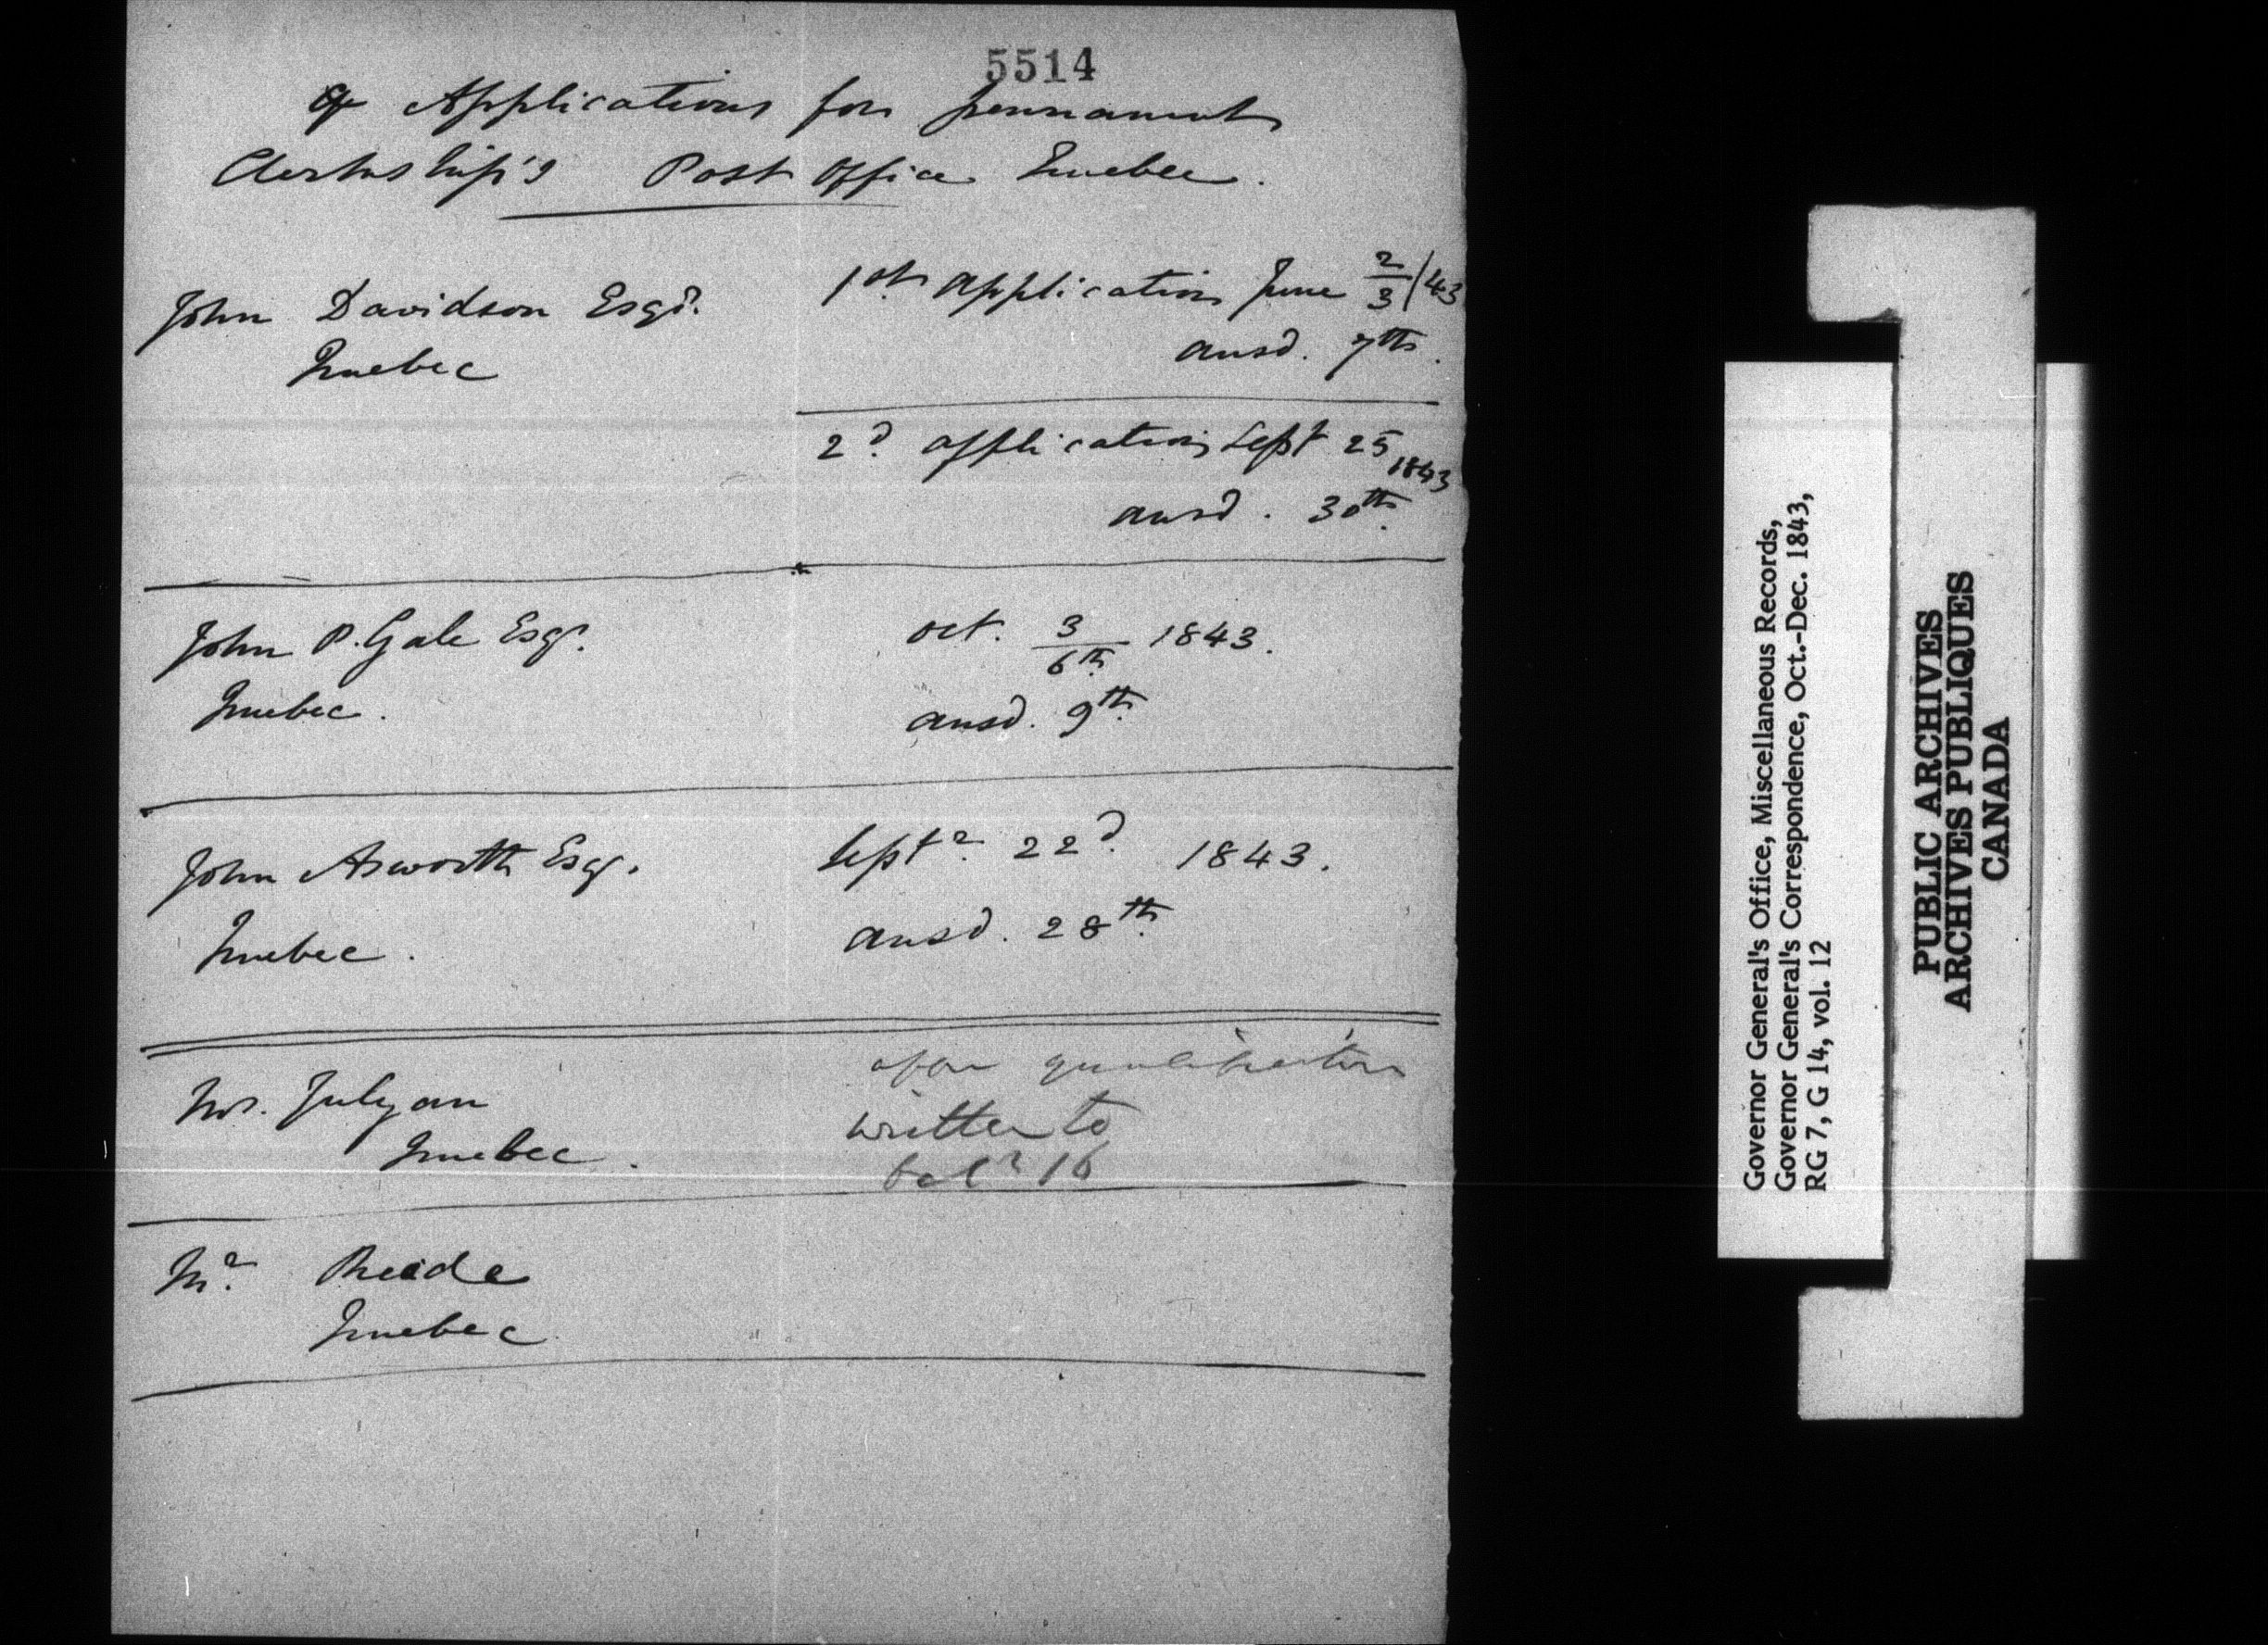 5514
of Applications for permanent
Clerkship's Post Office Quebec.
John Davidson Esqr.
Quebec
1st Application June 2/3/43
ansd. 7th.
2d. application Sept 25 1843
ansd. 30th.
John P. Gale Esqr.
Quebec.
Oct. 3/6th 1843.
ansd. 9th.
John Asworth Esqr.
Quebec.
Septr. 22d. 1843.
ansd. 28th.
Mr. Julyan
Quebec.
qualification
written to
Octr 16
Mr. Reade
Quebec
Governor General's Office, Miscellaneous Records,
Governor General's Correspondence, Oct.-Dec. 1843,
RG 7, G 14, vol. 12
PUBLIC ARCHIVES
ARCHIVES PUBLIQUES
CANADA